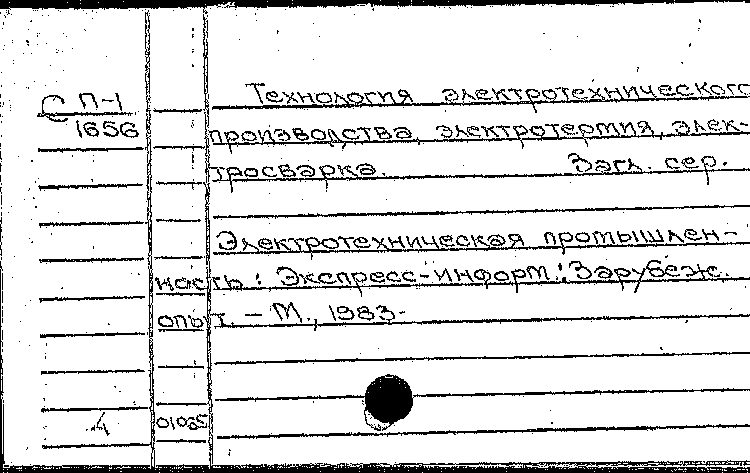 С П-1
1656
Технология электротехнического
производства, электротермия, элек-
тросварка. Загл. сер.
Электротехническая промышлен-
ность: Экспресс-информ.: Зарубеж.
опыт. – М., 1983-
4 01035